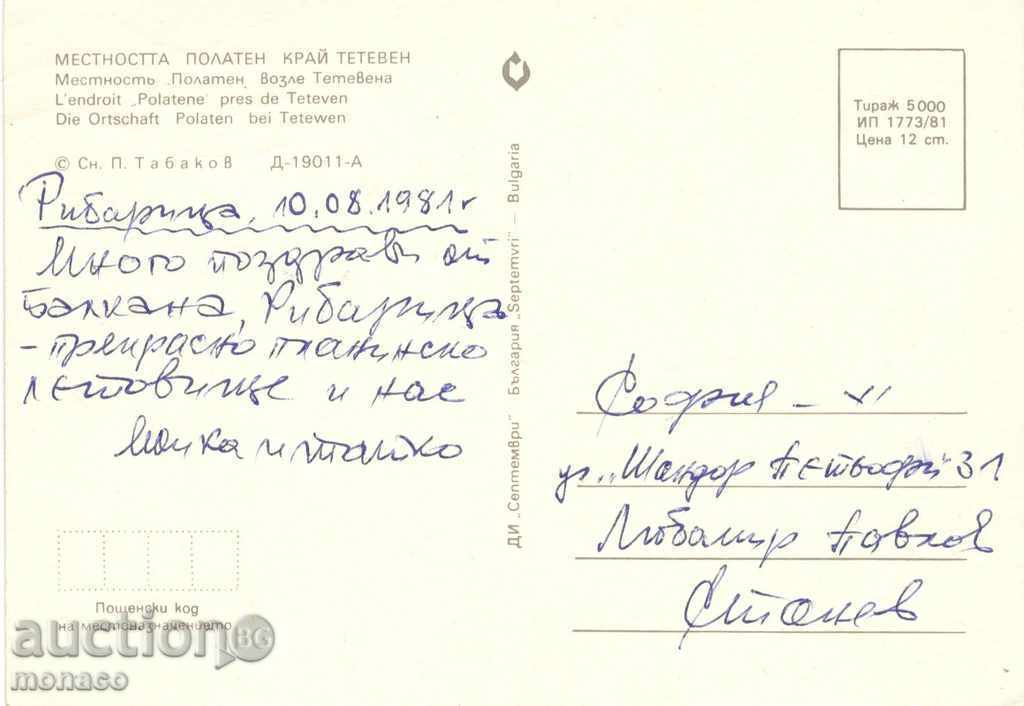 МЕСТНОСТТА ПОЛАТЕН КРАЙ ТЕТЕВЕН
Местность „Полатен„ возле Тетевена
L'endroit „Polatene' pres de Teteven
Die Ortschaft Polaten bei Tetewen
© Сн. П. Табаков Д-19011-А
Рибарица, 10.08.1981г
Много поздрави от
Балкана, Рибарица
– прекрасно планинско
летовище и нас
Майка и татко
Пощенски код
на местоназначението
ДИ „Септември" България „Septemvri" – Bulgaria
Тираж 5000
ИП 1773/81
Цена 12 ст.
София – XI
ул. „Шандор Петьофи" 31
Любомир Павлов
Стонев
auction BG
monaco